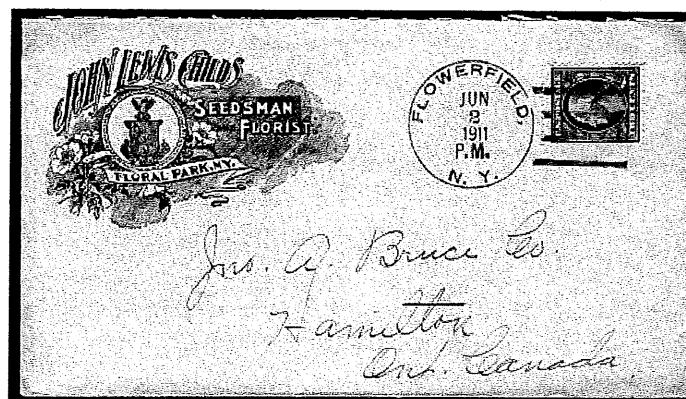 JOHN LEWIS CHILDS
SEEDSMAN
FLORIST
FLORAL PARK, N.Y.
FLOWERFIELD,
JUN
2
1911
P.M.
N. Y.
Jno. A. Bruce Co.
Hamilton
Ont. Canada